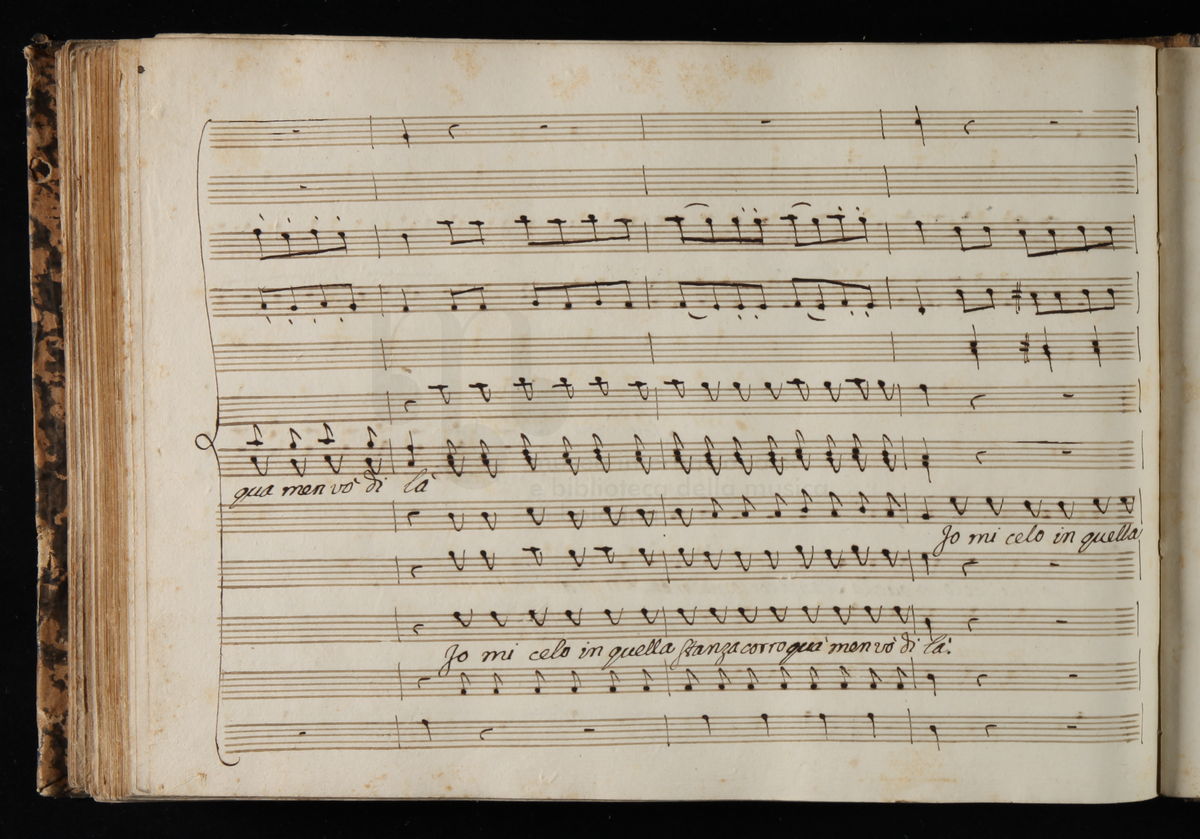 qua men vò di là
e biblioteca della musica
Jo mi celo in quella
Jo mi celo in quella stanza corro quà men vò di là.